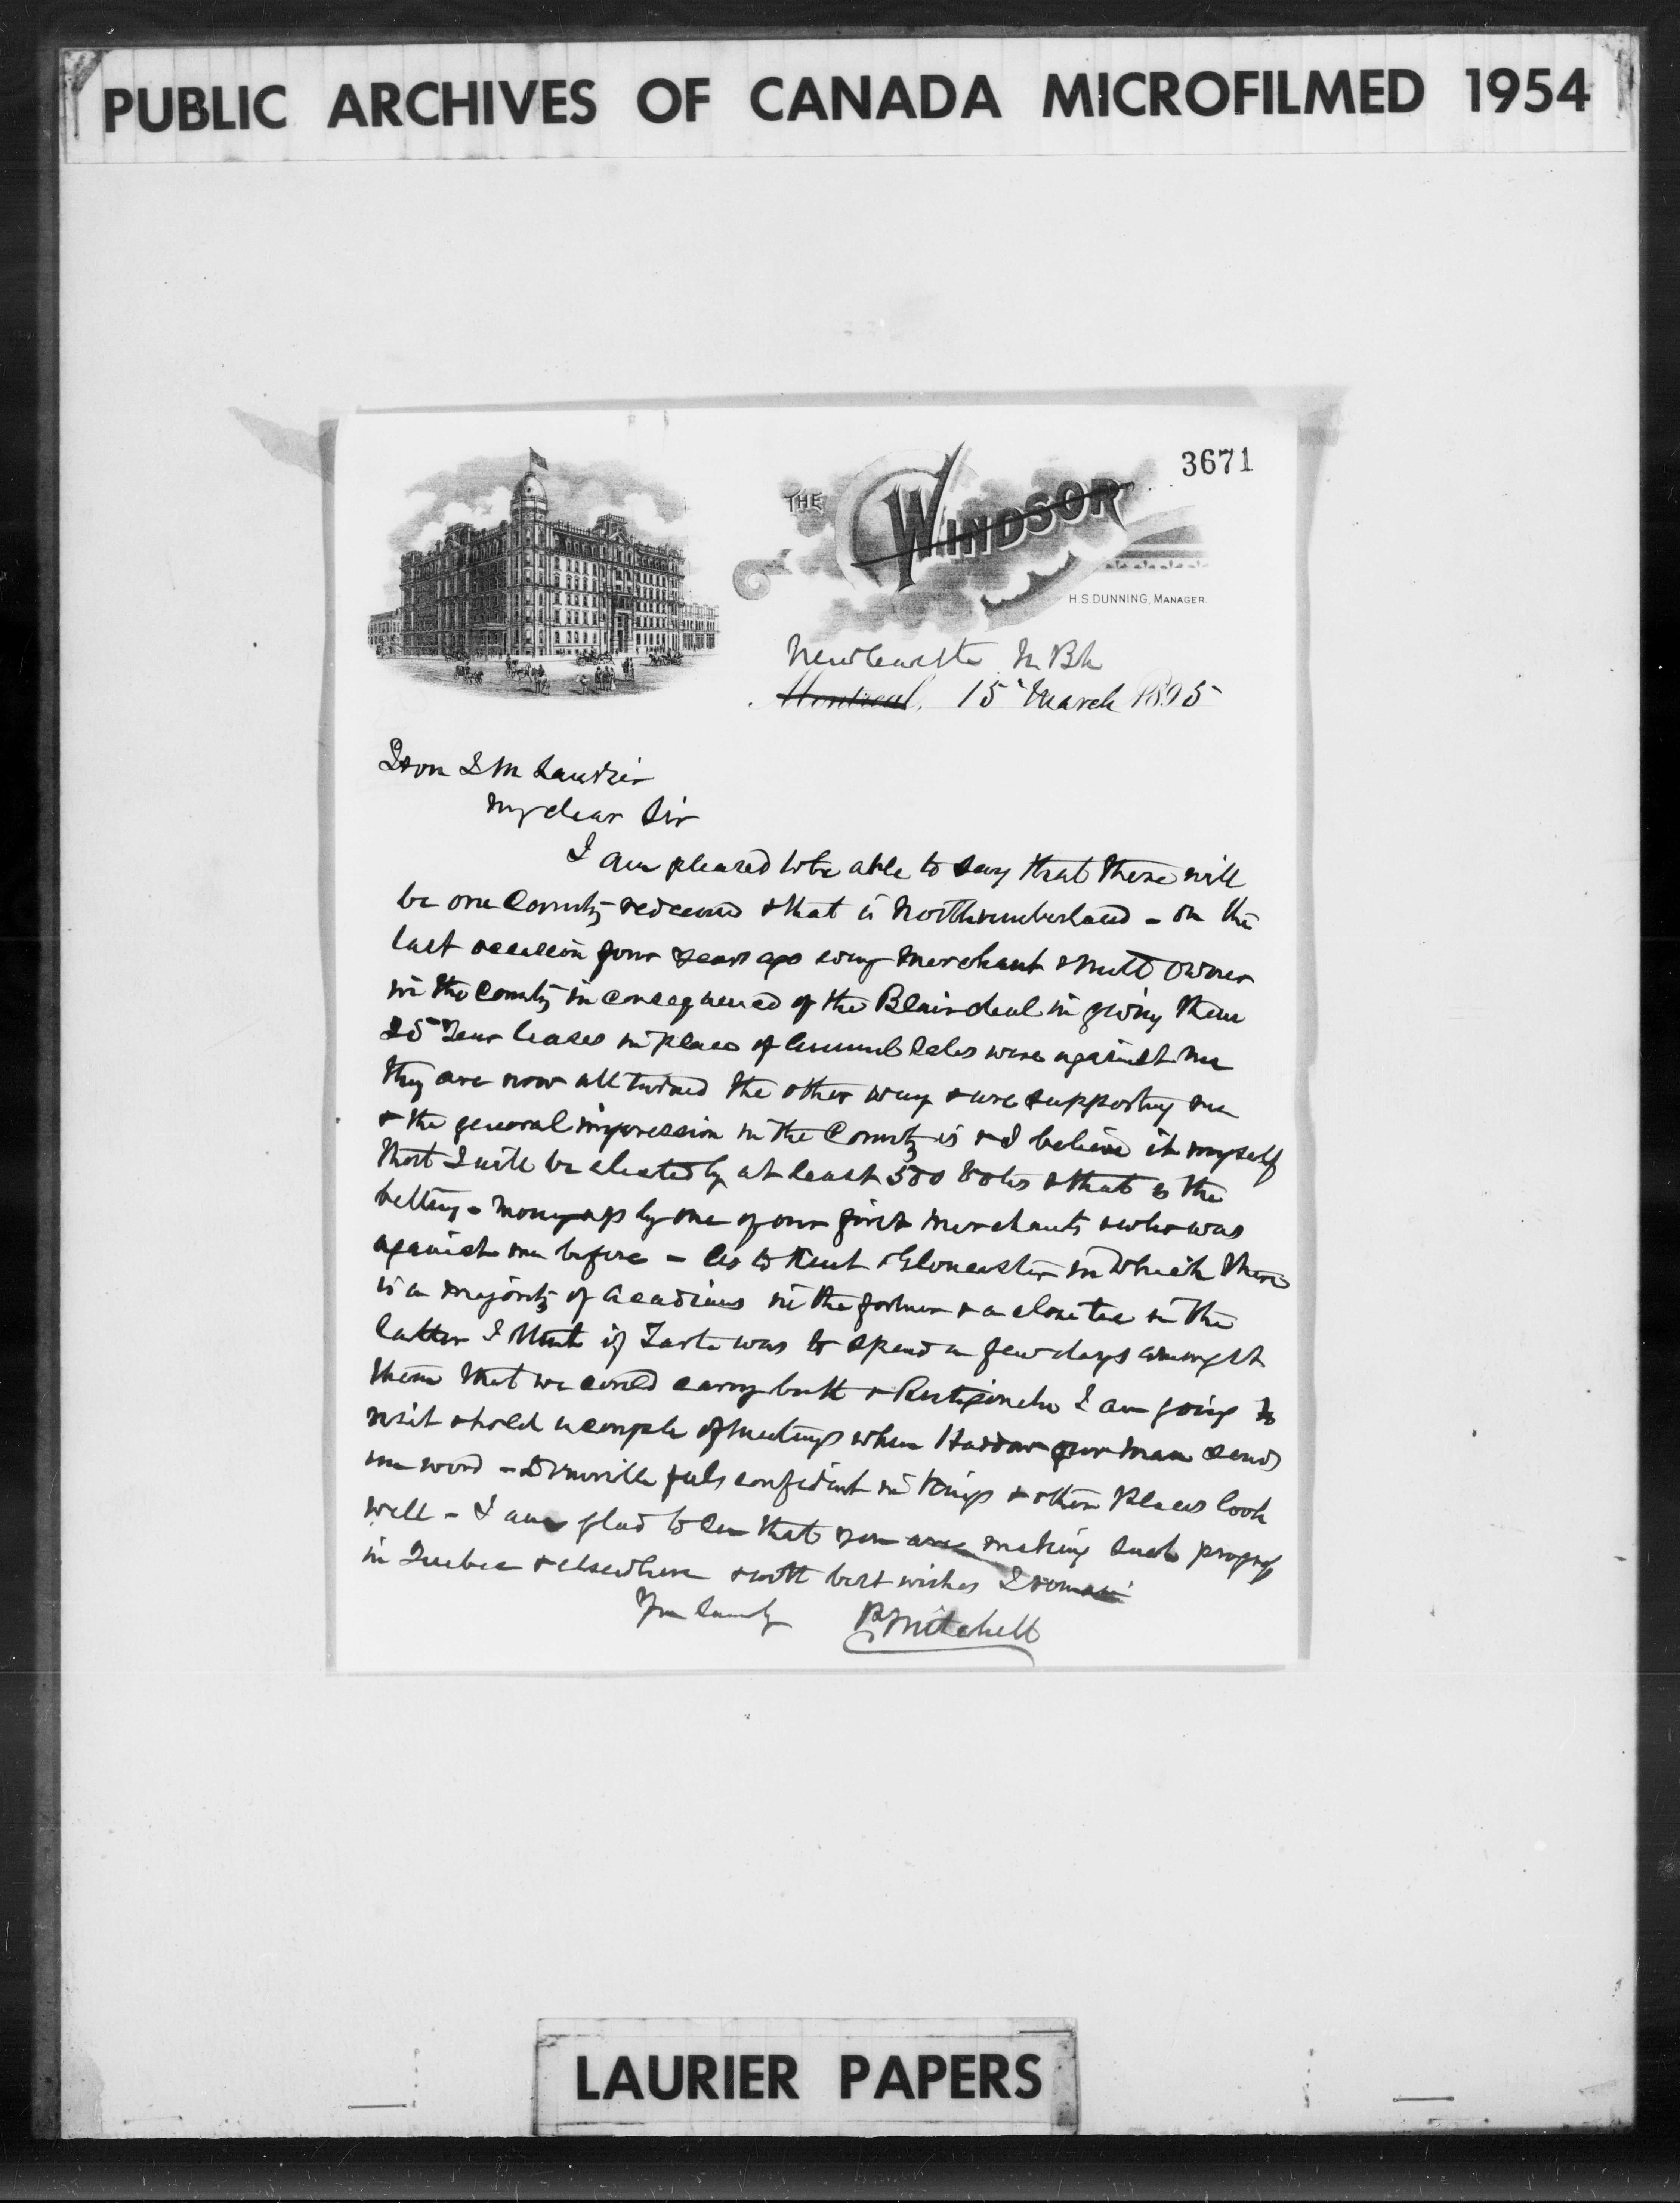 PUBLIC ARCHIVES OF CANADA MICROFILMED 1954
3671
THE WINDSOR
H.S. DUNNING, MANAGER.
Newcastle N Bk
Montreal, 15 March 1895
Hon Laurier
My dear Sir
I am pleased to be able to say that there will
be one County redeemed & that is Northumberland - on the
last occasion four years ago every Merchant & Mill Owner
in the County in consequence of the Blair deal in giving them
25 Year leases in place of Annual Sales were against me
they are now all turned the other way & are supporting me
& the general impression in the County is & I believe it myself
that I will be elected by at least 500 Votes & that is the
betting - money up by one of our first Merchants who was
against me before - As to Kent & Gloucester in which there
is a majority of Acadians in the former & a close tie in the
latter I think if Tarte was to spend a few days amongst
them that we could carry both & Restigouche I am going to
visit & hold a couple of meetings when Haddow our man sends
me word - Domville feels confident in Kings & other Places look
well - I am glad to see that you are making such progress
in Quebec & elsewhere & with best wishes I remain
P Mitchell
LAURIER PAPERS